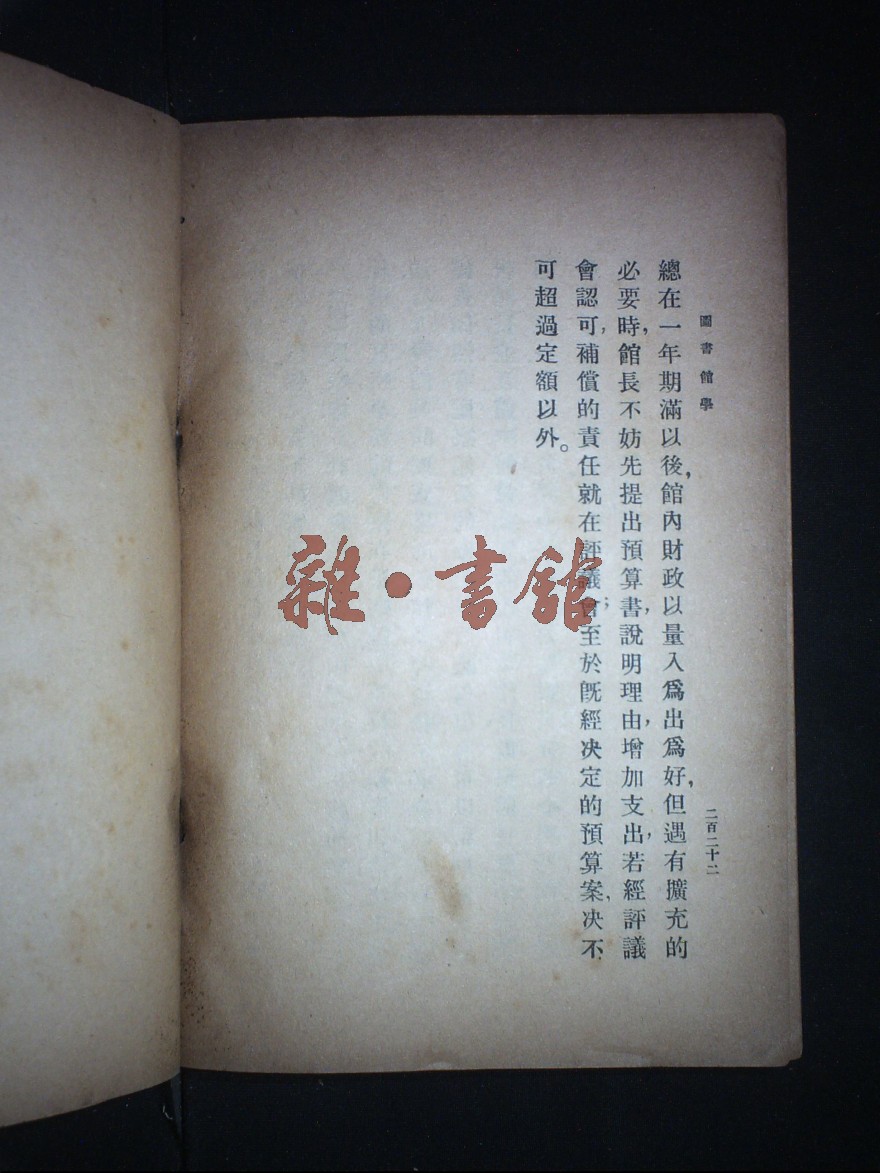 圖書館學
二百二十二
總在一年期滿以後，館內財政以量入爲出爲好，但遇有擴充的
必要時，館長不妨先提出預算書，說明理由，增加支出，若經評議
會認可，補償的責任就在評議會；至於既經决定的預算案，决不
可超過定額以外。
雜·書館